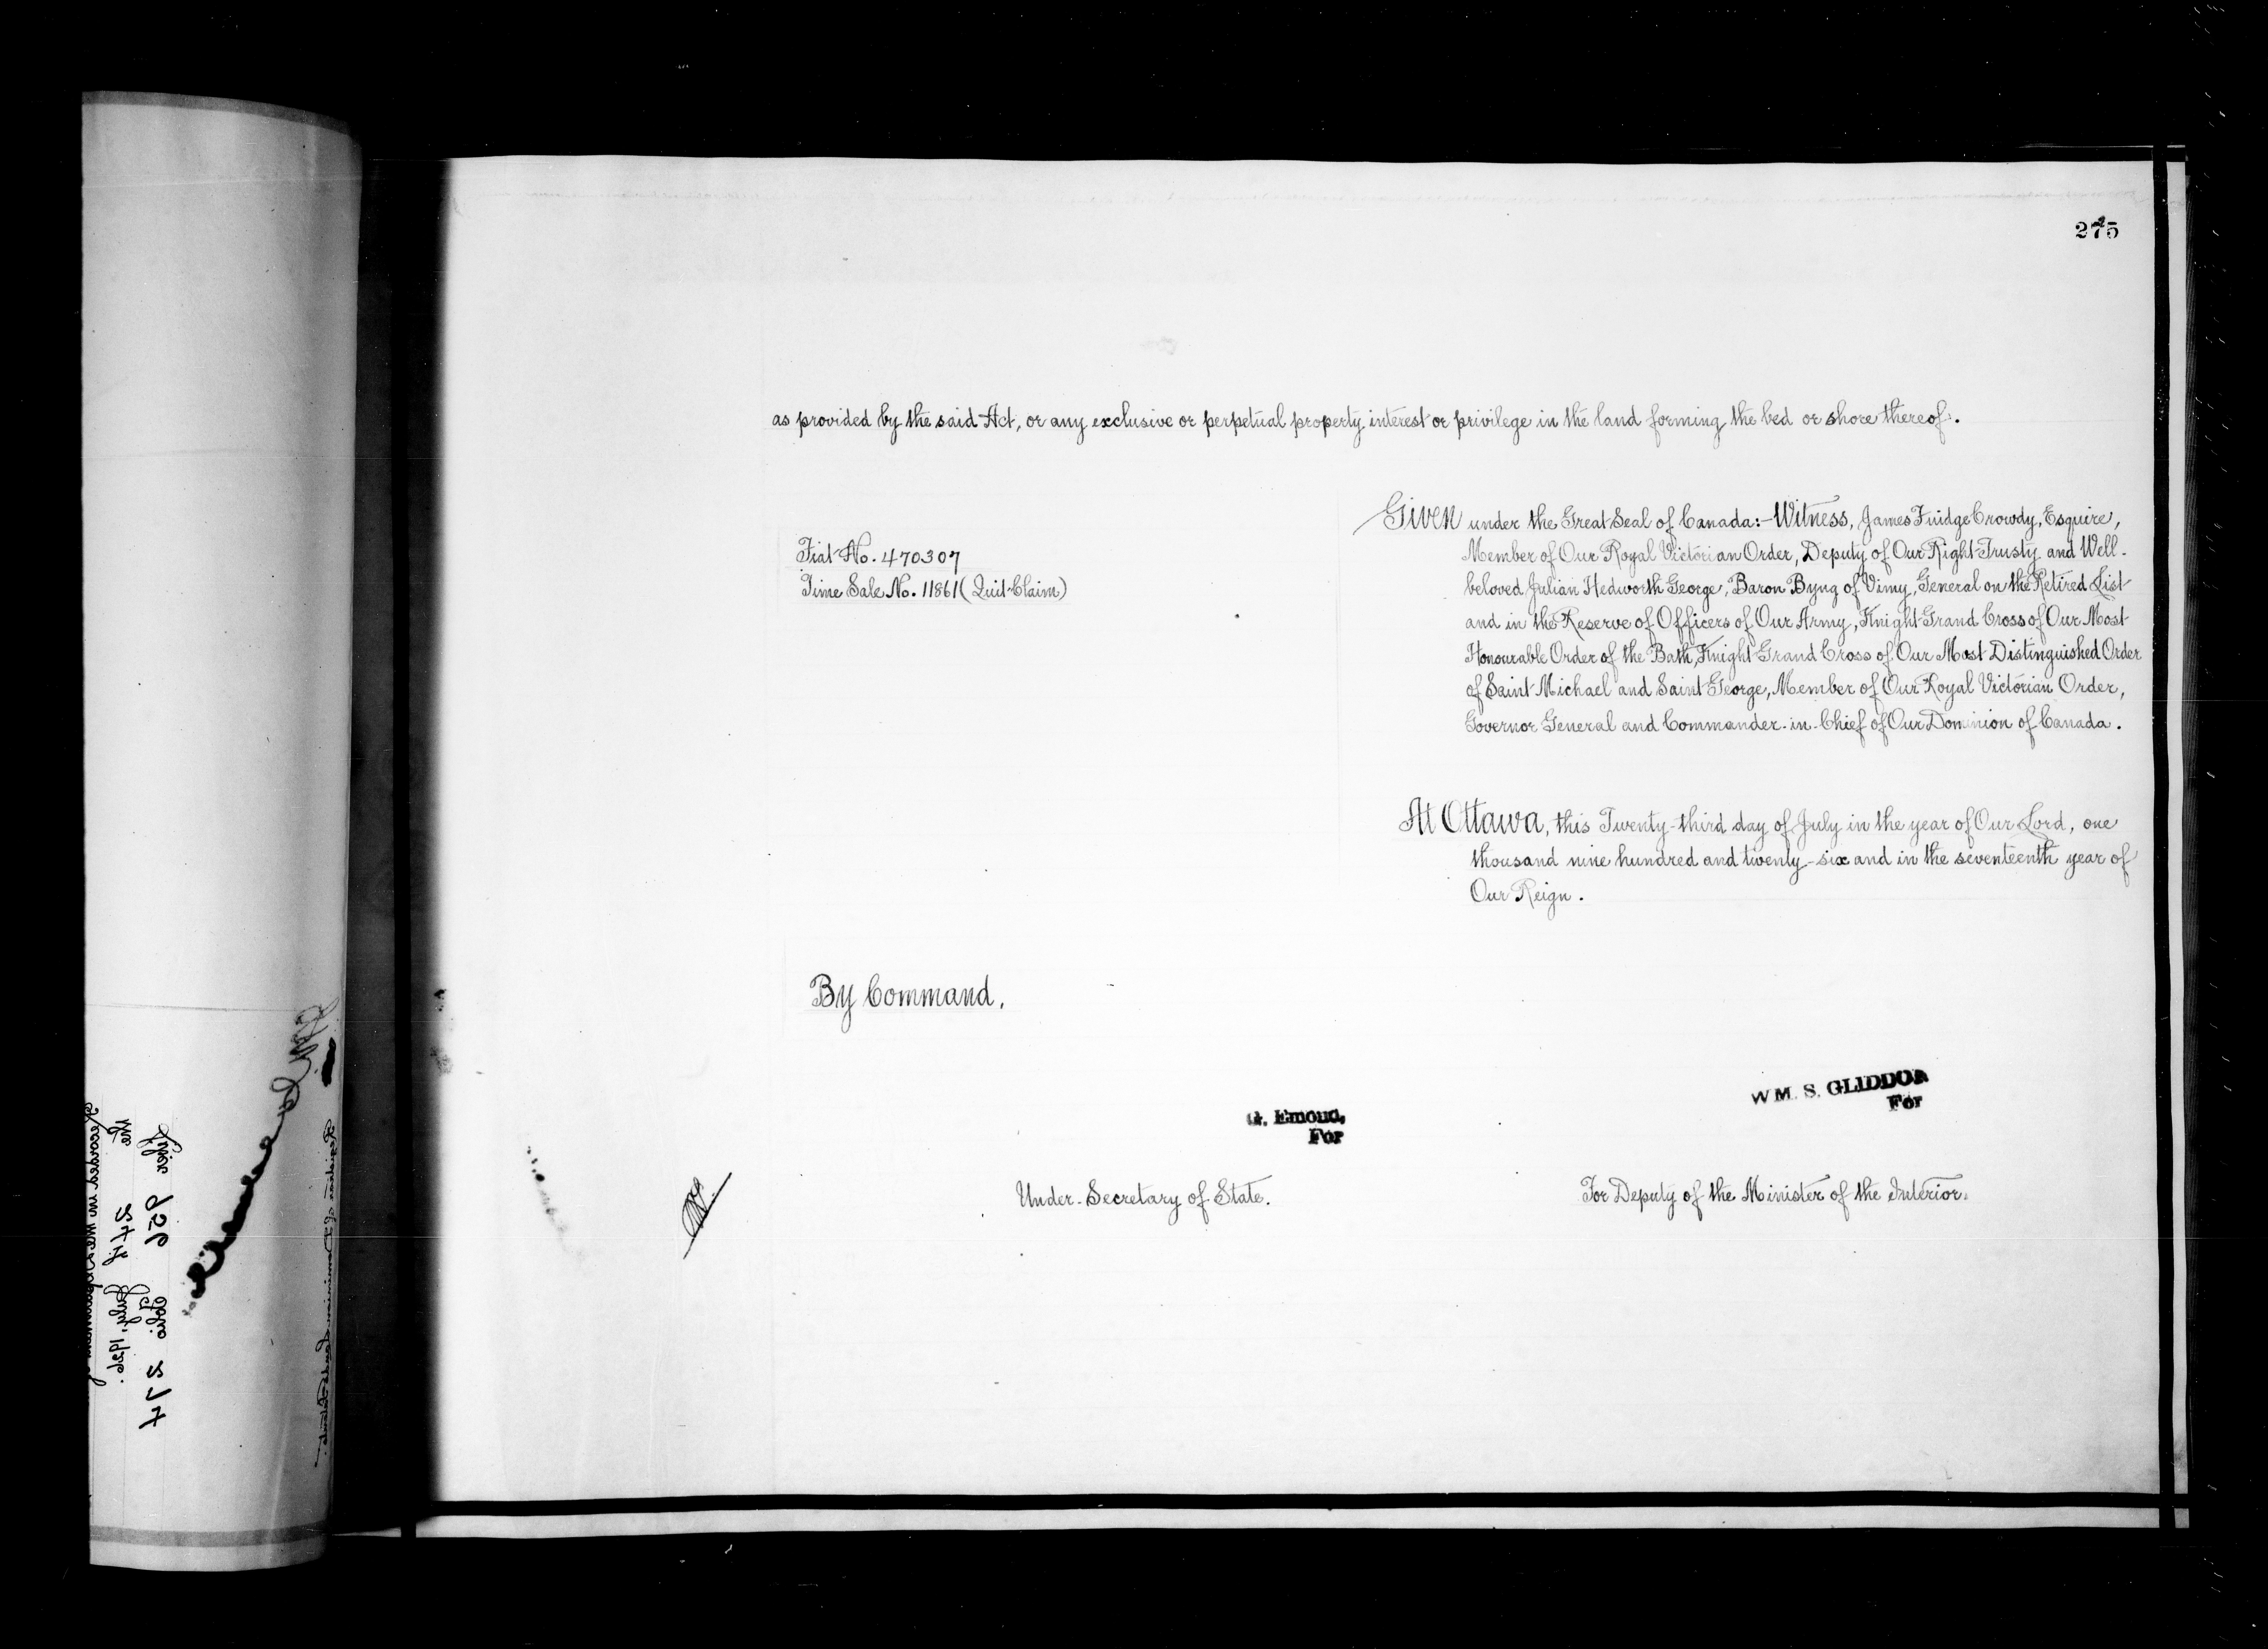 275
as provided by the said Act, or any exclusive or perpetual property interest or privilege in the land forming the bed or shore thereof.
Fiat No. 470307
Time Sale No. 11861 (Quit Claim)
Given under the Great Seal of Canada:- Witness, James Fuidge Crowdy, Esquire,
Member of Our Royal Victorian Order, Deputy of Our Right Trusty and Well-
beloved Julian Hedworth George, Baron Byng of Vimy, General on the Retired List
and in the Reserve of Officers of Our Army, Knight Grand Cross of Our Most
Honourable Order of the Bath, Knight Grand Cross of Our Most Distinguished Order
of Saint Michael and Saint George, Member of Our Royal Victorian Order,
Governor General and Commander-in-Chief of Our Dominion of Canada.
At Ottawa, this Twenty-third day of July in the year of Our Lord, one
thousand nine hundred and twenty-six and in the seventeenth year of
Our Reign.
By Command,
G. Emond,
For
Under-Secretary of State.
WM. S. GLIDDON
For
For Deputy of the Minister of the Interior.
Recorded in the Department
the 24 July, 1926.
Liber 956 Folio 274
Registrar of Dominion Lands Patents.